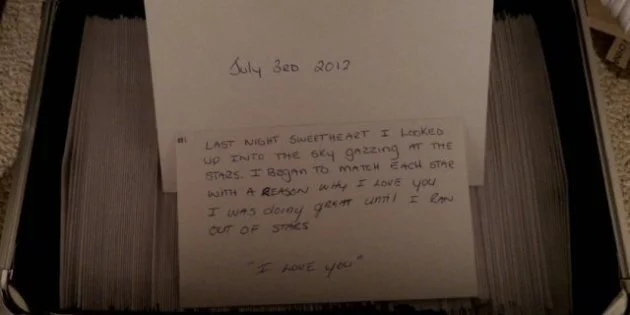 July 3RD 2012
#1 LAST NIGHT SWEETHEART I LOOKED
UP INTO THE SKY gazzing AT THE
STARS. I Began TO MATCH EACH STAR
WITH A REASON why I LOVE you
I WAS doing great until I RAN
OUT OF STARS
"I LOVE you"